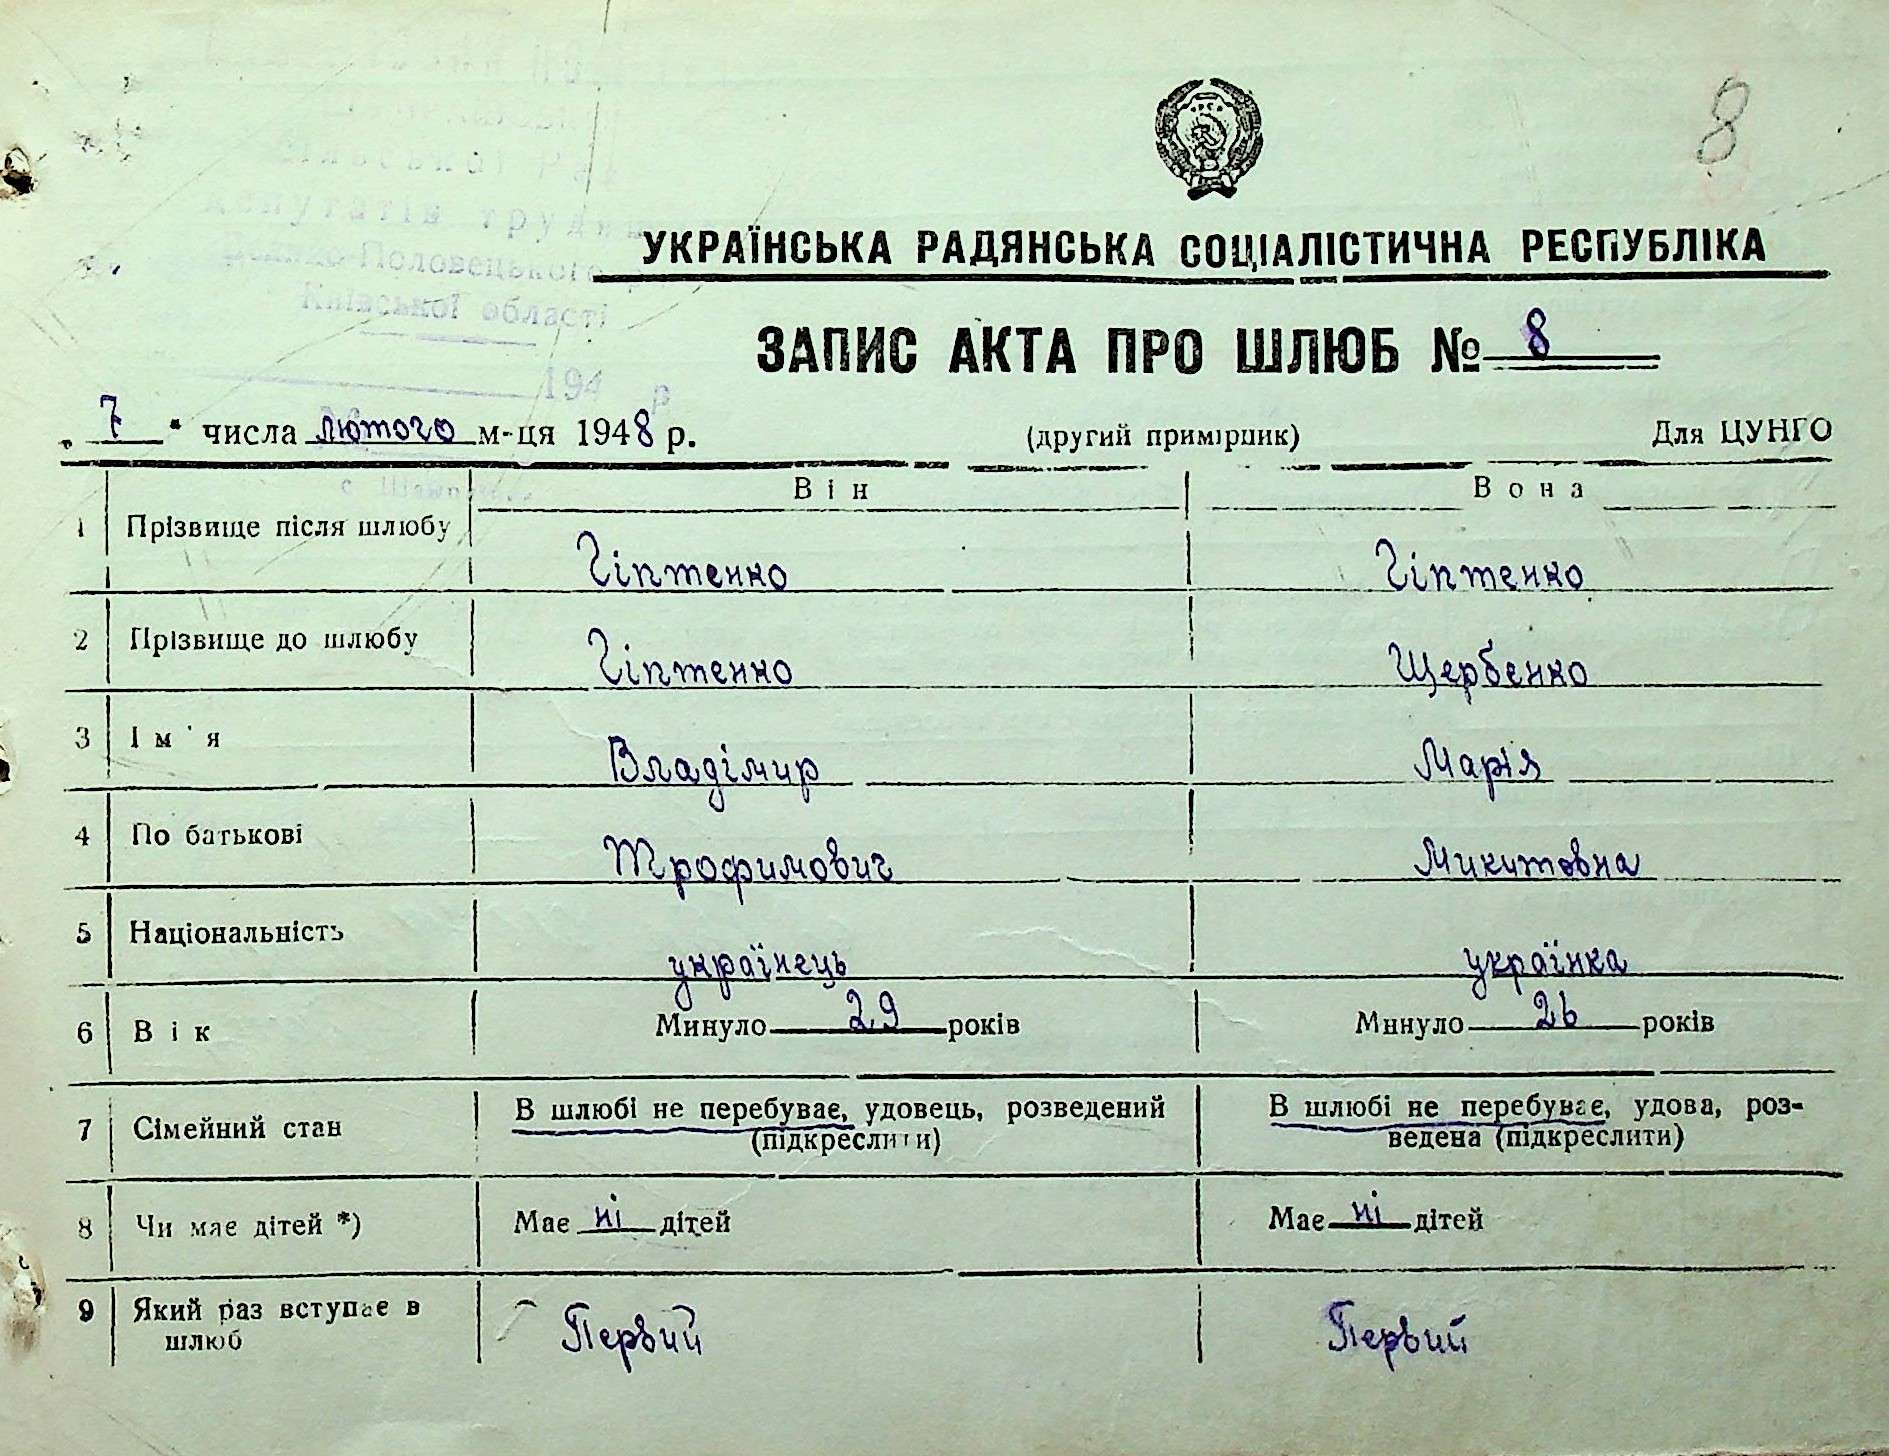 8
сільської Ра
депутатів трудящ
Половецького р
Київської області
194 р
УКРАЇНСЬКА РАДЯНСЬКА СОЦІАЛІСТИЧНА РЕСПУБЛІКА
ЗАПИС АКТА ПРО ШЛЮБ № 8
„ 7 " числа лютого м-ця 1948 р. (другий примірник) Для ЦУНГО
Він Вона
1 Прізвище після шлюбу Гіптенко Гіптенко
2 Прізвище до шлюбу Гіптенко Щербенко
3 Ім'я Владімир Марія
4 По батькові Трофимович Микитовна
5 Національність українець українка
6 Вік Минуло 29 років Минуло 26 років
7 Сімейний стан В шлюбі не перебуває, удовець, розведений (підкреслити) В шлюбі не перебуває, удова, роз-
ведена (підкреслити)
8 Чи має дітей *) Має ні дітей Має ні дітей
9 Який раз вступає в шлюб Первий Первий